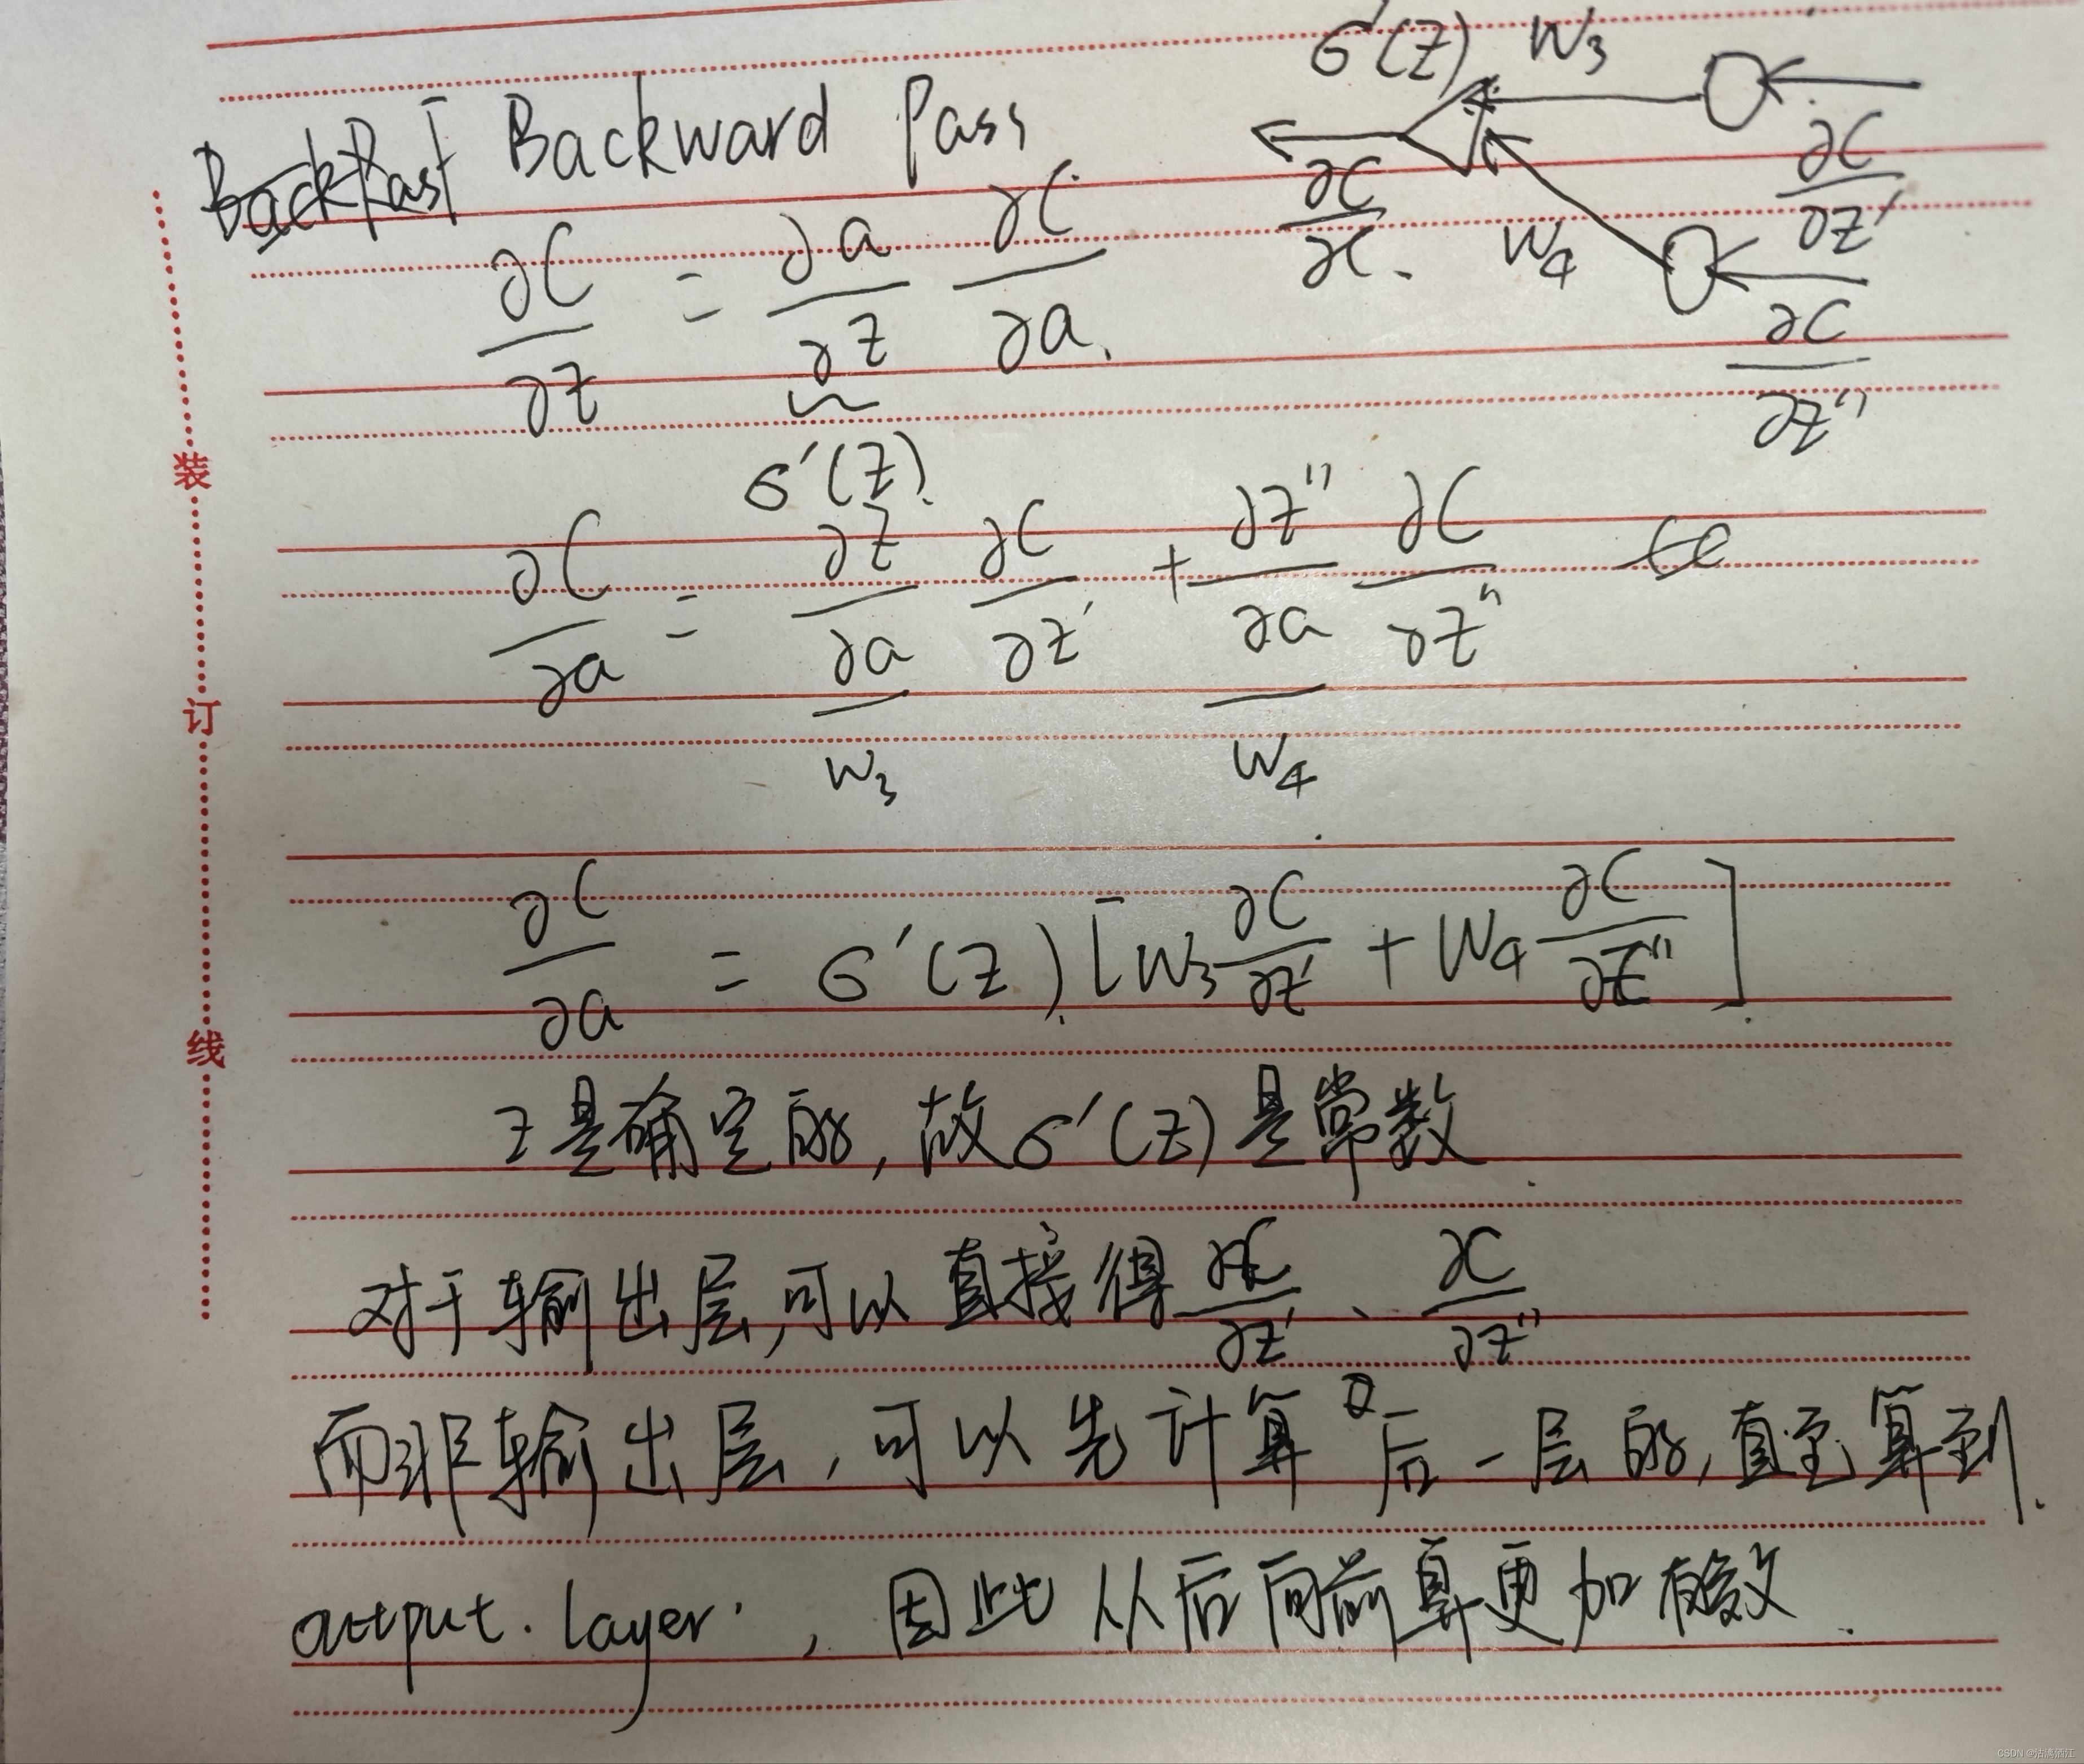 Backward Pass
σ'(z) W₃
∂C/∂z'
∂C/∂C. W₄
∂C/∂z''
∂C/∂z = ∂a/∂z ∂C/∂a.
σ'(z).
∂C/∂a = ∂z/∂a ∂C/∂z' + ∂z''/∂a ∂C/∂z''
W₃ W₄
∂C/∂a = σ'(z).[W₃ ∂C/∂z' + W₄ ∂C/∂z'']
z是确定的,故σ'(z)是常数.
对于输出层,可以直接得∂C/∂z'、∂C/∂z''
而非输出层,可以先计算后一层的,直至算到.
output. layer. ,因此从后向前算更加有效.
装
订
线
CSDN @沽漓酒江